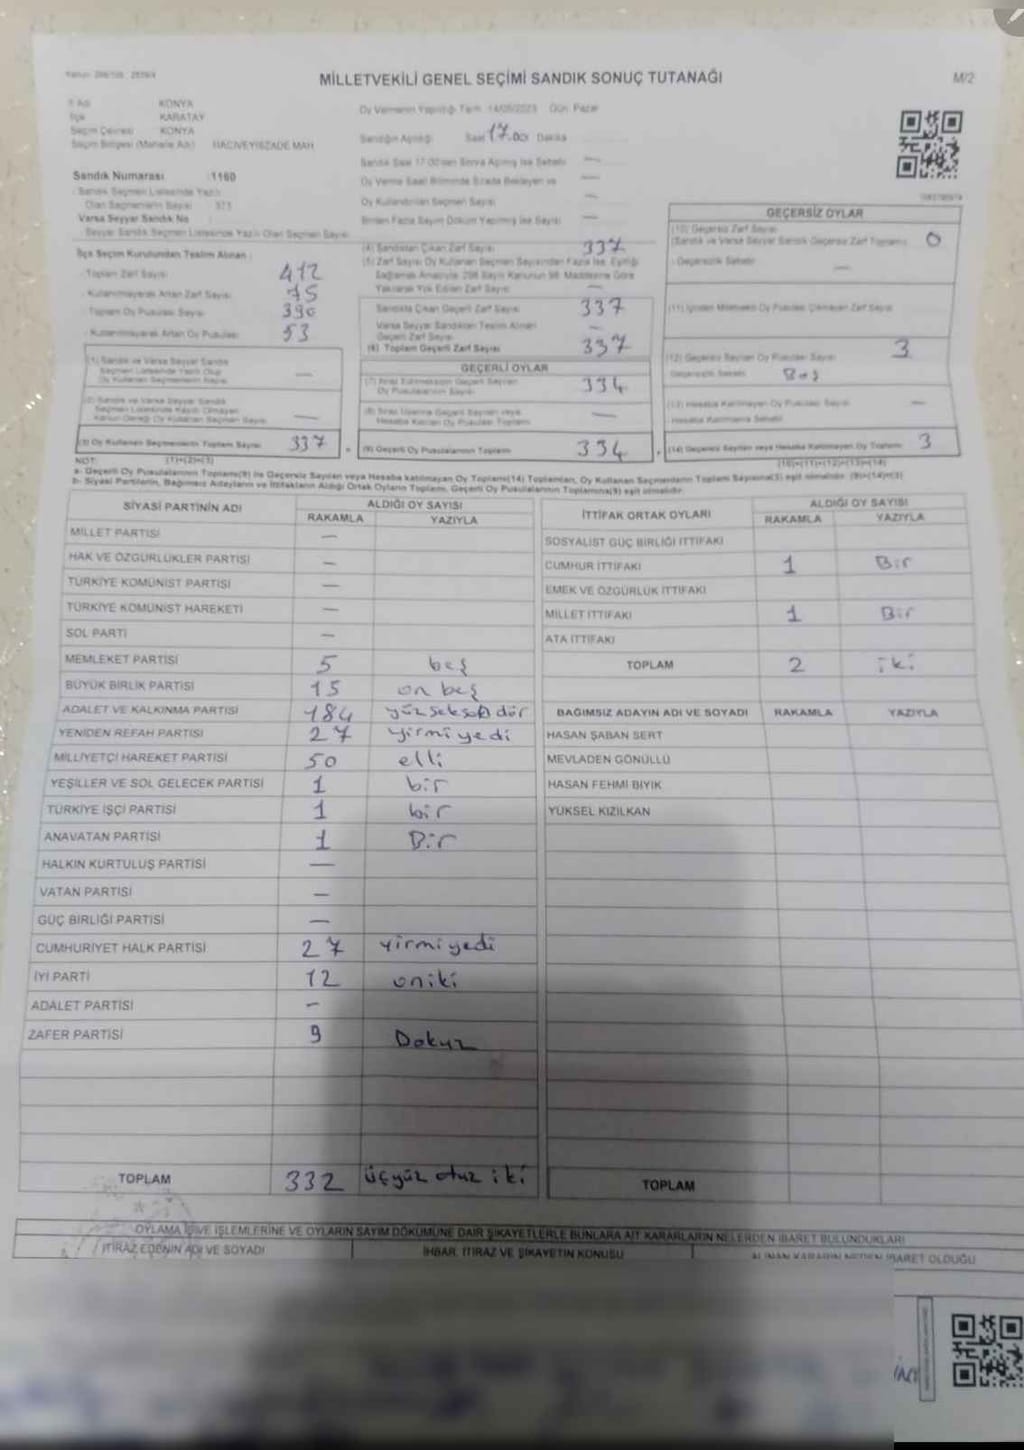 MİLLETVEKİLİ GENEL SEÇİMİ SANDIK SONUÇ TUTANAĞI
M/2
KONYA
İlçe KARATAY
Seçim Çevresi KONYA
Seçim Bölgesi (Mahalle Adı) HACIVEYİSZADE MAH
Oy Vermenin Yapıldığı Tarih 14/05/2023 Gün Pazar
Sandığın Açıldığı Saat 17.00 Dakika
Sandık Numarası :1160
Sandık Seçmen Listesinde Yazılı
Olan Seçmen Sayısı 373
Varsa Seyyar Sandık No
Seyyar Sandık Seçmen Listesinde Yazılı Olan Seçmen Sayısı
Oy Kullandırılan Seçmen Sayısı —
Birden Fazla Sayım Döküm Yapılmış İse Sayısı —
İlçe Seçim Kurulundan Teslim Alınan :
Toplam Zarf Sayısı 412
Kullanılmayarak Artan Zarf Sayısı 75
Toplam Oy Pusulası Sayısı 390
Kullanılmayarak Artan Oy Pusulası 53
(1) Sandık ve Varsa Seyyar Sandık
Seçmen Listesinde Yazılı Olup
Oy Kullanan Seçmenlerin Sayısı —
(3) Oy Kullanan Seçmenlerin Toplam Sayısı 337
(4) Sandıktan Çıkan Zarf Sayısı 337
Sandıkta Çıkan Geçerli Zarf Sayısı 337
Varsa Seyyar Sandıktan Teslim Alınan
Geçerli Zarf Sayısı —
(6) Toplam Geçerli Zarf Sayısı 337
GEÇERLİ OYLAR
(7) İtiraz Edilmeksizin Geçerli Sayılan
Oy Pusulalarının Sayısı 334
(8) İtiraz Üzerine Geçerli Sayılan veya
Hesaba Katılan Oy Pusulası Toplamı —
(9) Geçerli Oy Pusulalarının Toplamı 334
GEÇERSİZ OYLAR
(10) Geçersiz Zarf Sayısı
(Sandık ve Varsa Seyyar Sandık Geçersiz Zarf Toplamı) 0
Geçersizlik Sebebi —
(12) Geçersiz Sayılan Oy Pusulası Sayısı 3
Geçersizlik Sebebi Boş
(13) Hesaba Katılmayan Oy Pusulası Sayısı —
Hesaba Katılmama Sebebi
(14) Geçersiz Sayılan veya Hesaba Katılmayan Oy Toplamı 3
NOT: (1)+(2)=(3)
(10)+(11)+(12)+(13)=(14)
a- Geçerli Oy Pusulalarının Toplamı(9) ile Geçersiz Sayılan veya Hesaba katılmayan Oy Toplamı(14) Toplamları, Oy Kullanan Seçmenlerin Toplam Sayısına(3) eşit olmalıdır. (9)+(14)=(3)
b- Siyasi Partilerin, Bağımsız Adayların ve İttifakların Aldığı Ortak Oyların Toplamı, Geçerli Oy Pusulalarının Toplamına(9) eşit olmalıdır.
SİYASİ PARTİNİN ADI ALDIĞI OY SAYISI
RAKAMLA YAZIYLA
MİLLET PARTİSİ —
HAK VE ÖZGÜRLÜKLER PARTİSİ —
TÜRKİYE KOMÜNİST PARTİSİ —
TÜRKİYE KOMÜNİST HAREKETİ —
SOL PARTİ —
MEMLEKET PARTİSİ 5 beş
BÜYÜK BİRLİK PARTİSİ 15 on beş
ADALET VE KALKINMA PARTİSİ 184
YENİDEN REFAH PARTİSİ 27 yirmi yedi
MİLLİYETÇİ HAREKET PARTİSİ 50 elli
YEŞİLLER VE SOL GELECEK PARTİSİ 1 bir
TÜRKİYE İŞÇİ PARTİSİ 1 bir
ANAVATAN PARTİSİ 1 Bir
HALKIN KURTULUŞ PARTİSİ —
VATAN PARTİSİ —
GÜÇ BİRLİĞİ PARTİSİ —
CUMHURİYET HALK PARTİSİ 27 yirmi yedi
İYİ PARTİ 12 oniki
ADALET PARTİSİ -
ZAFER PARTİSİ 9 Dokuz
TOPLAM 332 üçyüz otuz iki
İTTİFAK ORTAK OYLARI ALDIĞI OY SAYISI
RAKAMLA YAZIYLA
SOSYALİST GÜÇ BİRLİĞİ İTTİFAKI
CUMHUR İTTİFAKI 1 Bir
EMEK VE ÖZGÜRLÜK İTTİFAKI
MİLLET İTTİFAKI 1 Bir
ATA İTTİFAKI
TOPLAM 2 iki
BAĞIMSIZ ADAYIN ADI VE SOYADI RAKAMLA YAZIYLA
HASAN ŞABAN SERT
MEVLADEN GÖNÜLLÜ
HASAN FEHMİ BIYIK
YÜKSEL KIZILKAN
TOPLAM
OYLAMA İŞ VE İŞLEMLERİNE VE OYLARIN SAYIM DÖKÜMÜNE DAİR ŞİKAYETLERLE BUNLARA AİT KARARLARIN NELERDEN İBARET BULUNDUKLARI
İTİRAZ EDENİN ADI VE SOYADI
İHBAR, İTİRAZ VE ŞİKAYETİN KONUSU
ALINAN KARARIN NEDEN İBARET OLDUĞU